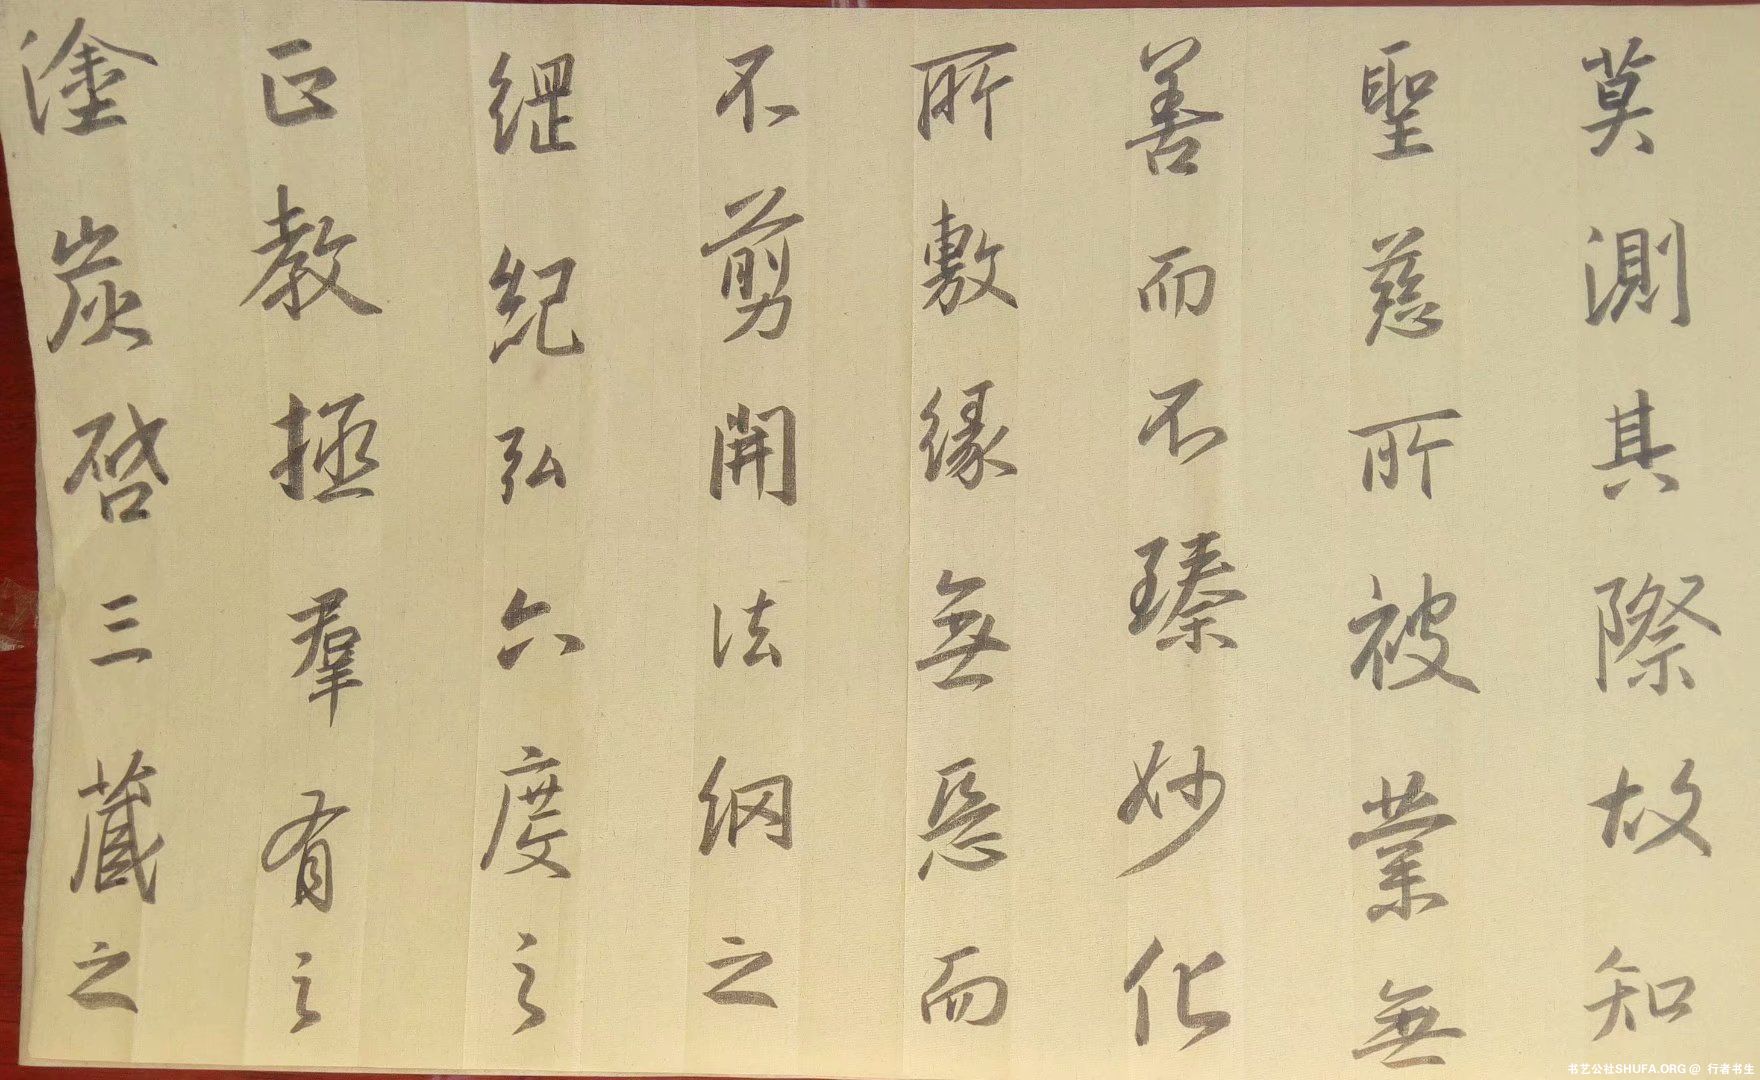 莫測其際故知
聖慈所被業無
善而不臻妙化
所敷緣無惡而
不剪開法網之
綱紀弘六度之
正教拯群有之
塗炭啓三藏之
书艺公社SHUFA.ORG@ 行者书生